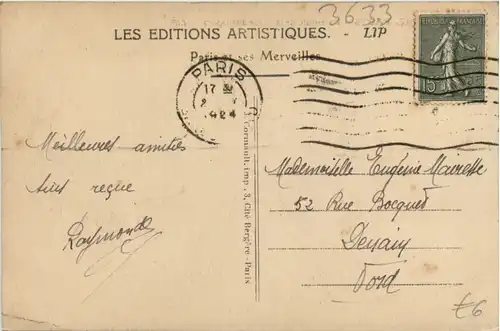 3633
LES EDITIONS ARTISTIQUES. - LIP
Paris et ses Merveilles
REPUBLIQUE FRANÇAISE
15
PARIS
17
1924
Meilleures amitiés
Raymonde
J. Cormault, imp., 3, Cité Bergère - Paris
Mademoiselle Eugénie Mairesse
52 Rue Bocquet
Denain
Nord
£6